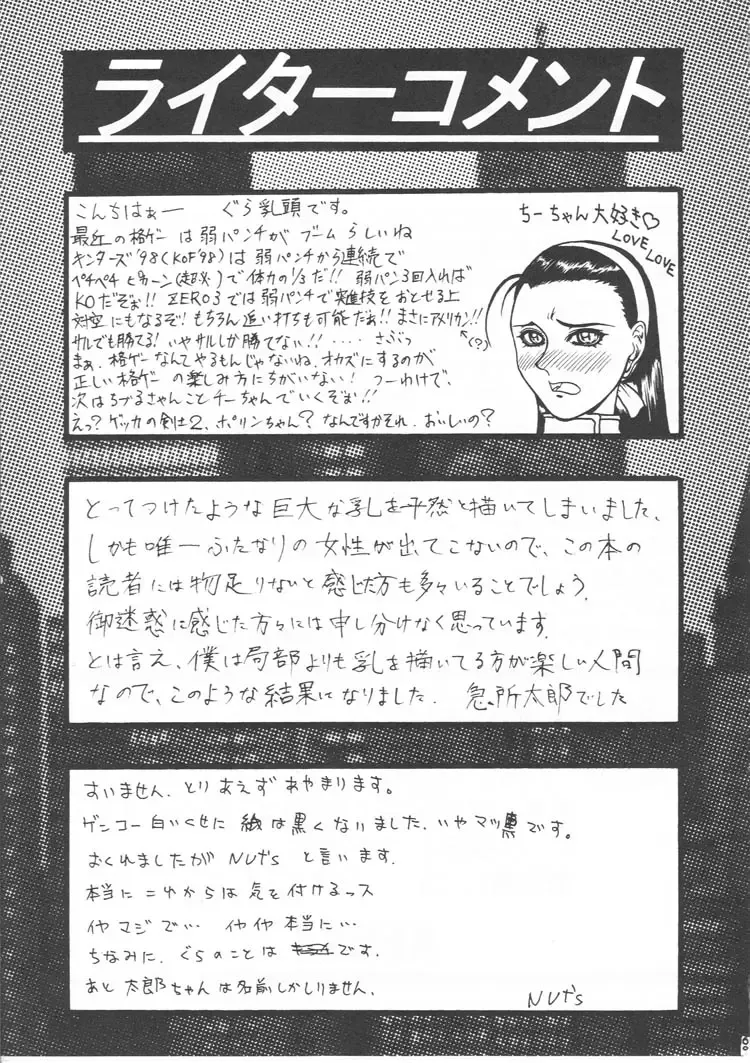 ライターコメント
こんちはぁー ぐら乳頭です。
最近の格ゲーは弱パンチがブームらしいね
キンターズ'98(KOF'98)は弱パンチから連続で
ペチペチ ピキーン(超必)で体力の1/3だ!! 弱パン3回入れば
KOだぞぉ!! ZERO3では弱パンチで をおとせる上
対空にもなるぞ! もちろん追い打ちも可能だぁ!! まさにアメリカン!!
サルでも勝てる! いやサルしか勝てない!! ‥‥ さぶっ
まぁ、格ゲーなんてやるもんじゃないね、オカズにするのが
正しい格ゲーの楽しみ方にちがいない! つーわけで、
次はちづるさんことチーちゃんでいくぞぉ!!
えっ? ゲッカの剣士2、ポリンちゃん? なんですかそれ、おいしいの?
ちーちゃん大好き♡
LOVE LOVE
←(?)
とってつけたような巨大な乳を平然と描いてしまいました、
しかも唯一ふたなりの女性が出てこないので、この本の
読者には物足りないと感じた方も多々いることでしょう。
御迷惑に感じた方々には申し分けなく思っています。
とは言え、僕は局部よりも乳を描いてる方が楽しい人間
なので、このような結果になりました。 急所太郎でした
すいません、とりあえずあやまります。
ゲンコー白いくせに 絵は黒くないました、いやマッ黒です。
おくれましたが NUらs と言います。
本当に これからは 気を付けるっス
イヤマジで… イヤイヤ本当に…
ちなみに、ぐらのことは です。
あと 太郎ちゃんは名前しかしりません、
NUらs